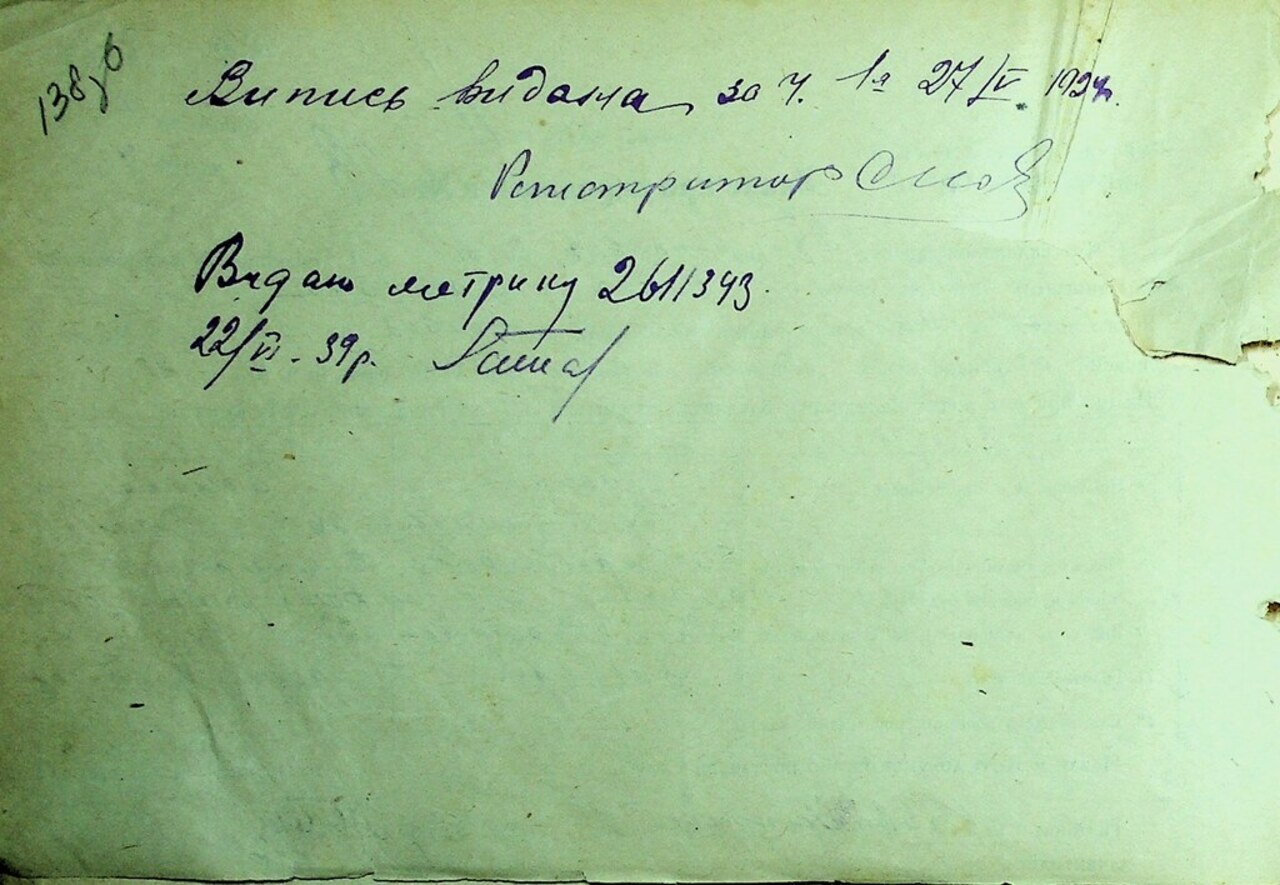 138зв
Випись видана за ч. 1а 27/IV 1924.
Регістратор
Видано метрику 2611343.
22/VI - 39р.